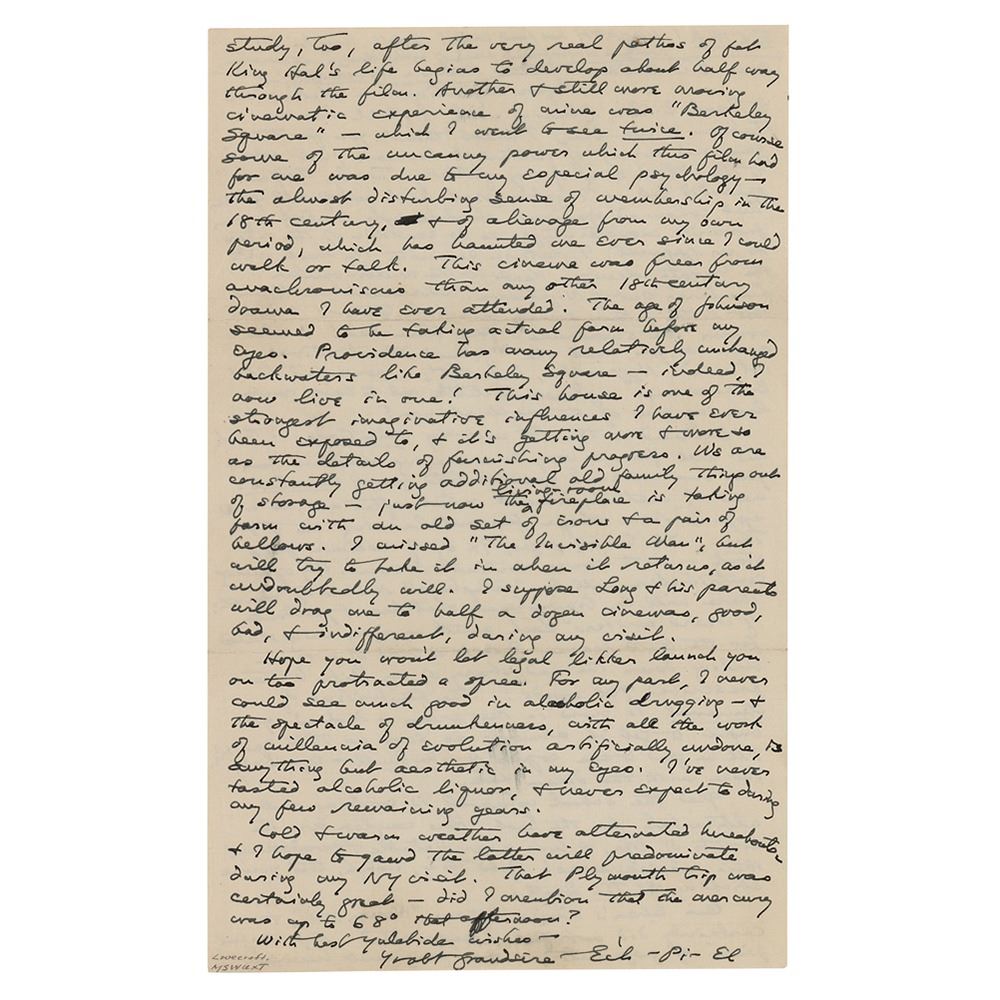 study, too, after the very real pathos of fat
King Hal's life begins to develop about half way
through the film. Another & still more moving
cinematic experience of mine was "Berkeley
Square" — which I went to see twice. Of course
some of the uncanny power which this film had
for me was due to my especial psychology —
the almost disturbing sense of membership in the
18th century, & of alienage from my own
period, which has haunted me ever since I could
walk or talk. This cinema was freer from
anachronisms than any other 18th century
drama I have ever attended. The age of Johnson
seemed to be taking actual form before my
eyes. Providence has many relatively unchanged
backwaters like Berkeley Square — indeed, I
now live in one! This house is one of the
strongest imaginative influences I have ever
been exposed to, & it's getting more & more so
as the details of furnishing progress. We are
constantly getting additional old family things out
of storage — just now the living-room fireplace is taking
form with an old set of irons & a pair of
bellows. I missed "The Invisible Man", but
will try to take it in when it returns, as it
undoubtedly will. I suppose Long & his parents
will drag me to half a dozen cinemas, good,
bad, & indifferent, during my visit.
Hope you won't let legal likker launch you
on too protracted a spree. For my part, I never
could see much good in alcoholic drugging — &
the spectacle of drunkenness, with all the work
of millennia of evolution artificially undone, is
anything but aesthetic in my eyes. I've never
tasted alcoholic liquor, & never expect to during
my few remaining years.
Cold & warm weather have alternated hereabouts
& I hope to gawd the latter will predominate
during my NY visit. That Plymouth trip was
certainly great — did I mention that the mercury
was up to 68° that afternoon?
With best Yuletide wishes —
Yr obt Grandsire — Ech-Pi-El
Lovecraft.